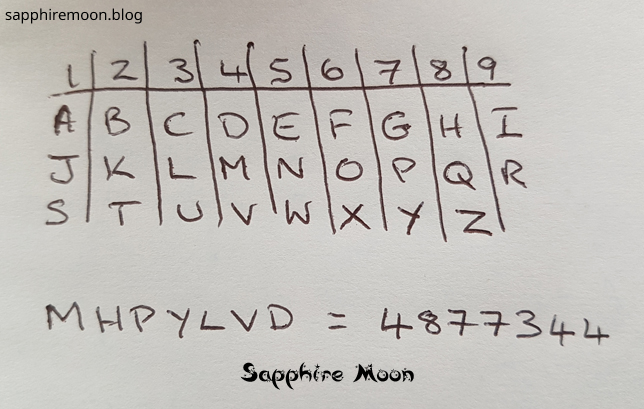 sapphiremoon.blog
1 2 3 4 5 6 7 8 9
A B C D E F G H I
J K L M N O P Q R
S T U V W X Y Z
MHPYLVD = 4877344
Sapphire Moon